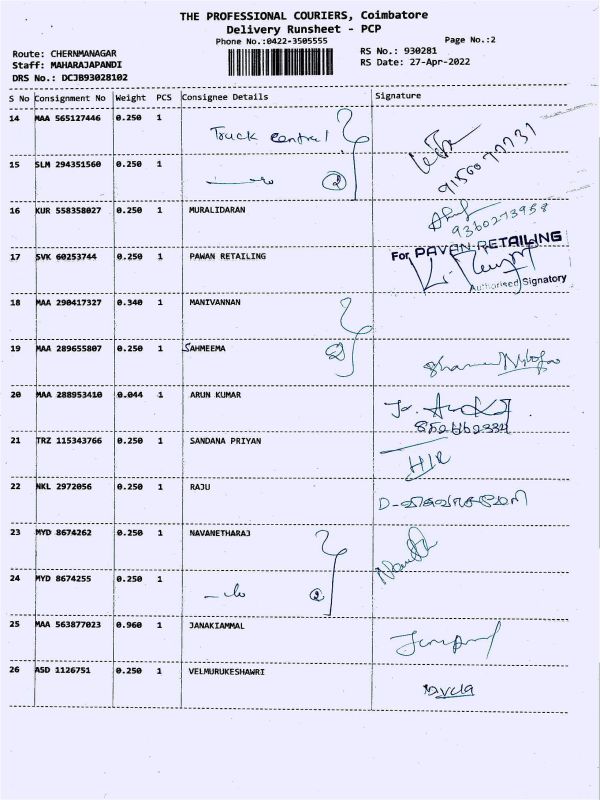 THE PROFESSIONAL COURIERS, Coimbatore
Delivery Runsheet - PCP
Phone No.:0422-3505555
Page No.:2
Route: CHERNMANAGAR
RS No.: 930281
Staff: MAHARAJAPANDI
RS Date: 27-Apr-2022
DRS No.: DCJB93028102
S No Consignment No Weight PCS Consignee Details Signature
14 MAA 565127446 0.250 1
Truck central
15 SLM 294351560 0.250 1
2
16 KUR 558358027 0.250 1 MURALIDARAN
9360273958
17 SVK 60253744 0.250 1 PAWAN RETAILING
For PAVAN RETAILING
Authorised Signatory
18 MAA 290417327 0.340 1 MANIVANNAN
19 MAA 289655807 0.250 1 SAHMEEMA
2
20 MAA 288953410 0.044 1 ARUN KUMAR
21 TRZ 115343766 0.250 1 SANDANA PRIYAN
H/R
22 NKL 2972056 0.250 1 RAJU
23 MYD 8674262 0.250 1 NAVANETHARAJ
24 MYD 8674255 0.250 1
2
25 MAA 563877023 0.960 1 JANAKIAMMAL
26 ASD 1126751 0.250 1 VELMURUKESHAWRI